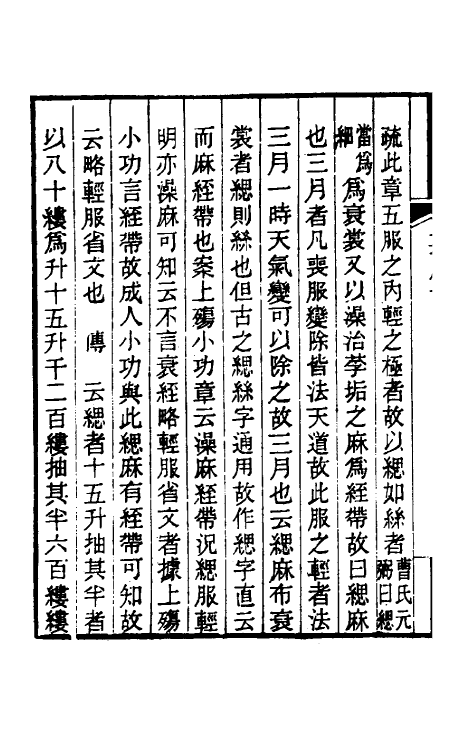 疏此章五服之內輕之極者故以緦如絲者曹氏元弼曰緦
當為細為衰裳又以澡治莩垢之麻為絰帶故曰緦麻
也三月者凡喪服變除皆法天道故此服之輕者法
三月一時天氣變可以除之故三月也云緦麻布衰
裳者緦則絲也但古之緦絲字通用故作緦字直云
而麻絰帶也案上殤小功章云澡麻絰帶況緦服輕
明亦澡麻可知云不言衰絰略輕服省文者據上殤
小功言絰帶故成人小功與此緦麻有絰帶可知故
云略輕服省文也　傳　云緦者十五升抽其半者
以八十縷為升十五升千二百縷抽其半六百縷縷